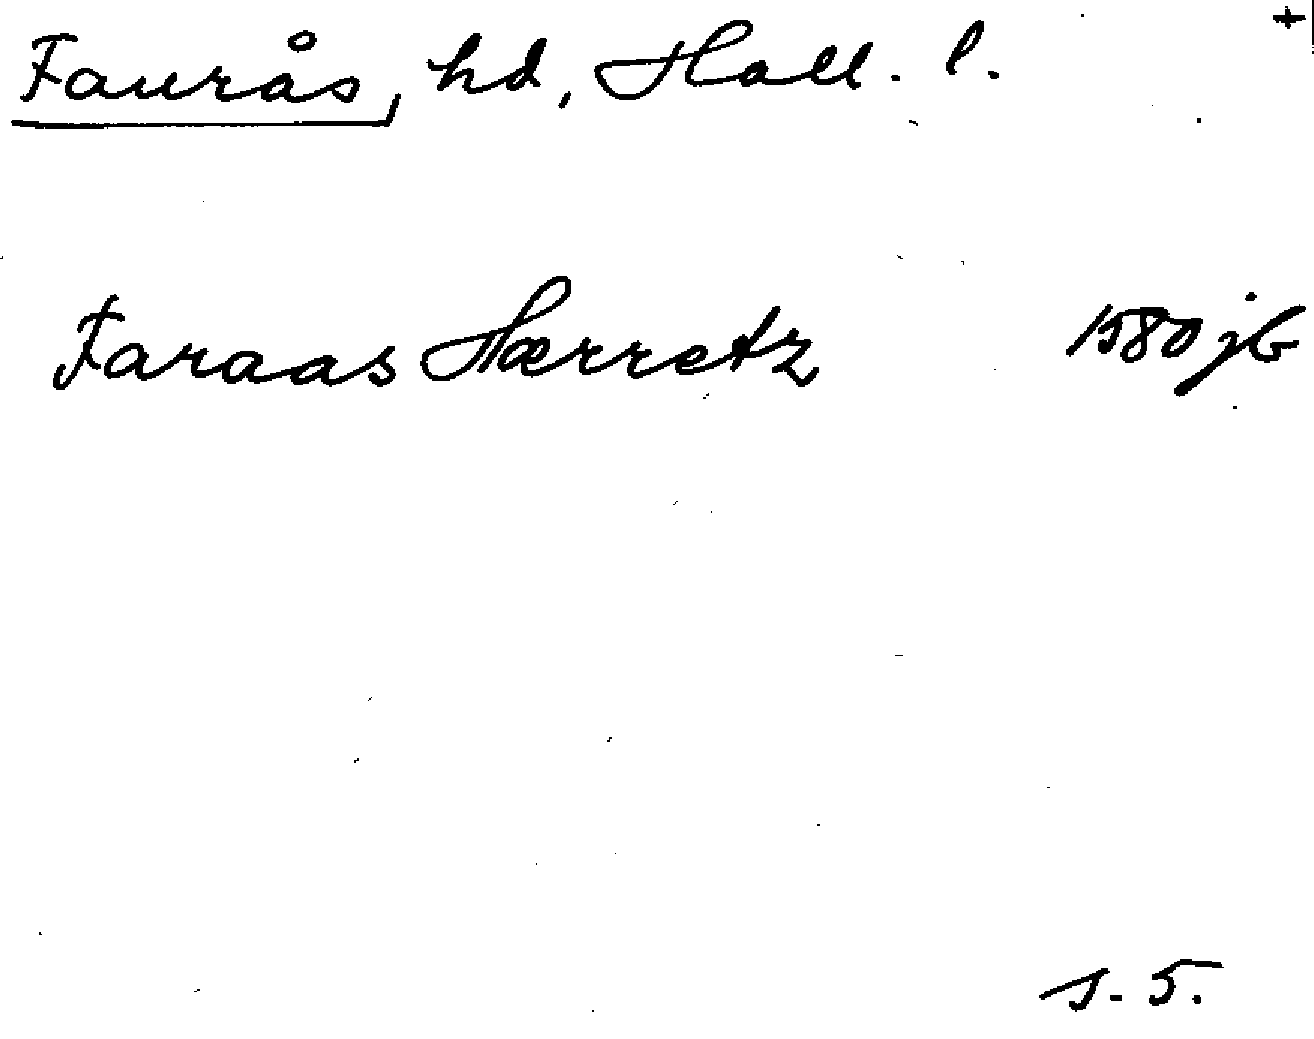 +
Faurås, hd, Hall. l.
Faraas Hærretz 1580 jb
s. 5.